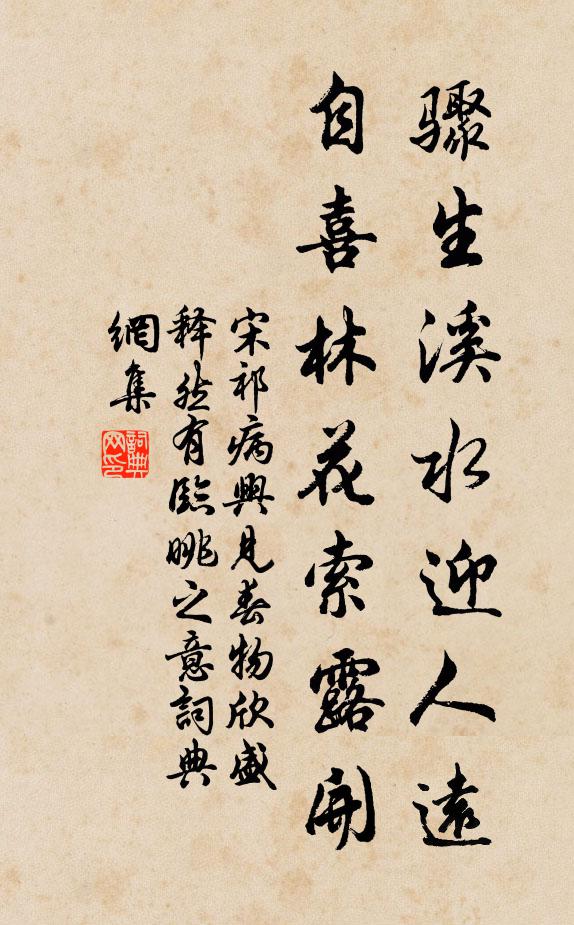 驟生溪水迎人遠
自喜林花索露開
宋祁病興見春物欣盛
释然有臨眺之意詞典
網集
詞典
网印